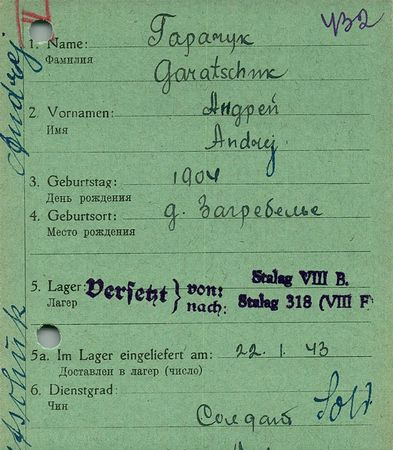 узв
1. Name: Гарачук
Фамилия
Garatschuk
2. Vornamen: Андрей
Имя
Andrej
3. Geburtstag: 1904
День рождения
4. Geburtsort: д. Загребелье
Место рождения
5. Lager: Versetzt } von: Stalag VIII B.
Лагер nach: Stalag 318 (VIII F
5a. Im Lager eingeliefert am: 22. 1. 43
Доставлен в лагер (число)
6. Dienstgrad:
Чин
Солдат Sold
Andrej
tschuk